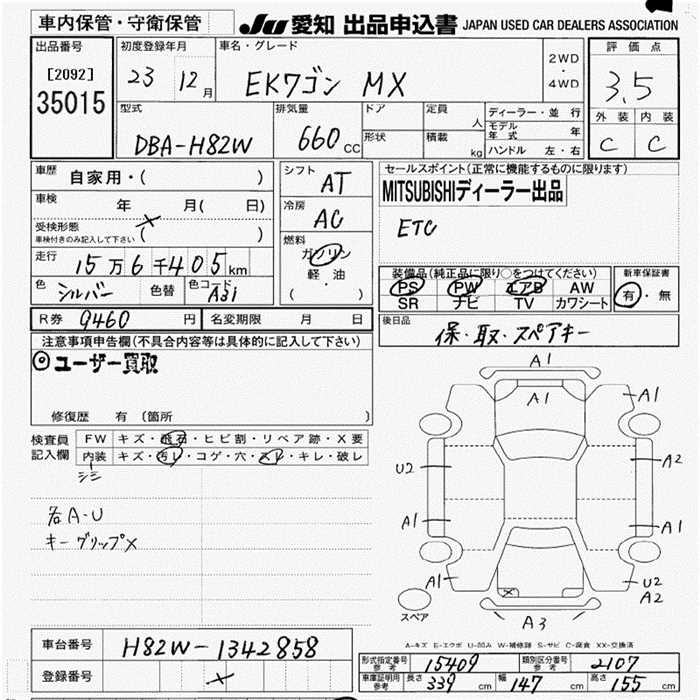 車内保管・守衛保管 JU 愛知 出品申込書 JAPAN USED CAR DEALERS ASSOCIATION
出品番号 初度登録年月 車名・グレード 評価点
[2092] 23 12月 EKワゴン MX 2WD・4WD 3.5
35015
型式 排気量 ドア 定員 人 ディーラー・並行 外装 内装
DBA-H82W 660cc 形状 積載 kg モデル年式 年 C C
ハンドル 左・右
車歴 自家用・( ) シフト AT セールスポイント(正常に機能するものに限ります)
車検 年 月( 日) 冷房 AC MITSUBISHIディーラー出品
受検形態 ( ) ETC
車検付きのみ記入して下さい
走行 15万6千405km 燃料 ガソリン 軽・油 ( )
色 シルバー 色替 色コード A31
装備品(純正品に限り○をつけてください) 新車保証書
PS PW エアB AW 有・無
SR ナビ TV カワシート
R券 9460円 名変期限 月 日 後日品 保・取・スペアキー
注意事項申告欄(不具合内容等は具体的に記入して下さい)
◎ユーザー買取
修復歴 有 〔箇所 〕
検査員記入欄 FW キズ・飛石・ヒビ割・リペア跡・X要
内装 キズ・汚レ・コゲ・穴・スレ・キレ・破レ
シミ
各A-U
キーグリップ×
A1
A1
A1
U2 A2
A1 A1
A1 U2
A2
×
スペア A3
A-キズ E-エクボ U-凹み W-補修跡 S-サビ C-腐食 XX-交換済
車台番号 H82W-1342858
登録番号
型式指定番号 参考 15409 類別区分番号 参考 2107
車庫証明用 参考 長さ 339cm 幅 147cm 高さ 155cm